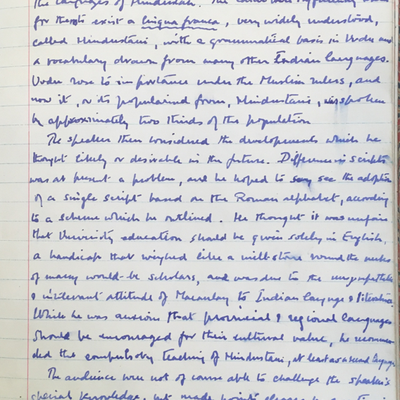 the languages of Hindustan. The
for there to exist a lingua franca, very widely understood,
called Hindustani, with a grammatical basis in Urdu and
a vocabulary drawn from many other Indian languages.
Urdu rose to importance under the Muslim rulers, and
now it, or its popularised form, Hindustani, is spoken
by approximately two thirds of the population.
The speaker then considered the developments which he
thought likely or desirable in the future. Difference in scripts
was at present a problem, and he hoped to see the adoption
of a single script based on the Roman alphabet, according
to a scheme which he outlined. He thought it was unfair
that University education should be given solely in English,
a handicap that weighed like a millstone round the necks
of many would-be scholars, and was due to the unsympathetic
& intolerant attitude of Macaulay to Indian language & literature.
While he was anxious that provincial & regional languages
should be encouraged for their cultural value, he recommen-
ded the compulsory teaching of Hindustani, at least as a second language
The audience were not of course able to challenge the speaker's
special knowledge, but made